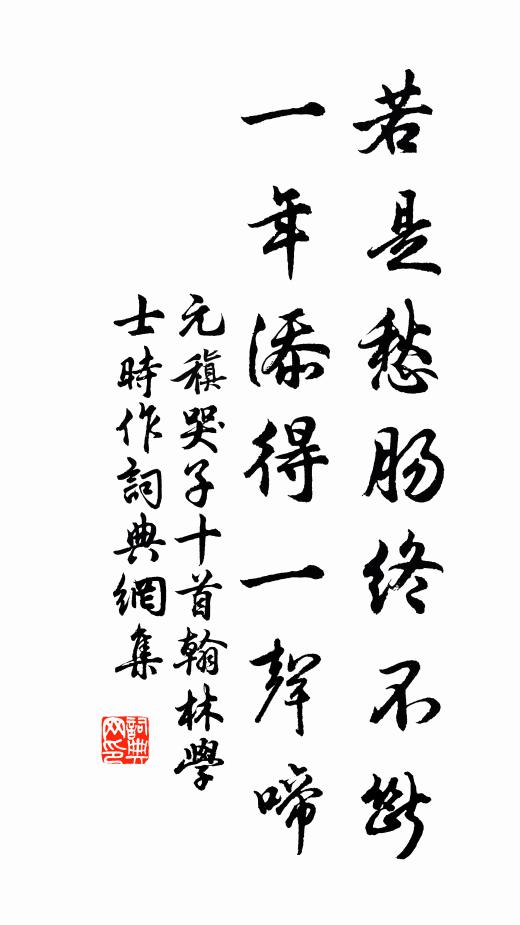 若是愁腸終不斷
一年添得一聲啼
元稹哭子十首翰林學
士時作詞典網集
詞典
网印